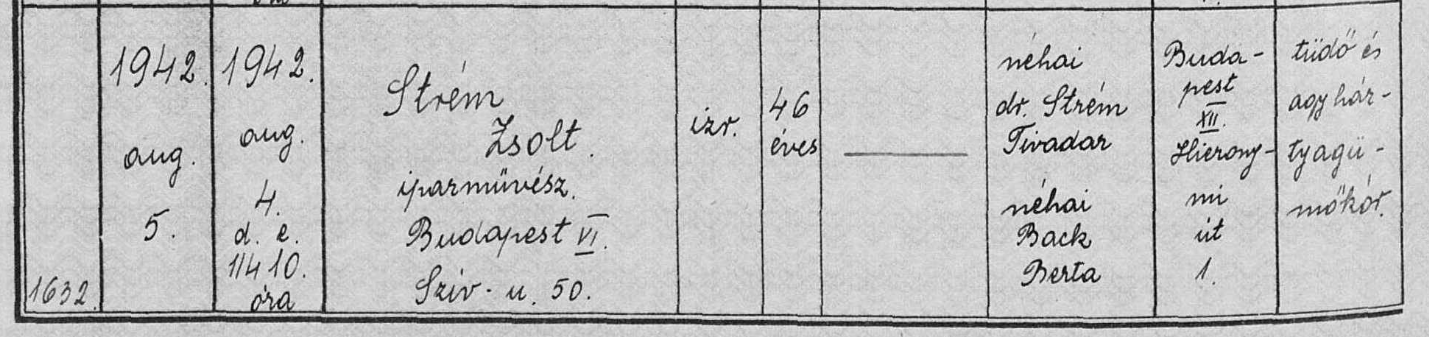 1632.
1942.
aug.
5.
1942.
aug.
4.
d. e.
1/4 10.
óra
Strém
Zsolt.
iparművész.
Budapest VI.
Sziv-u. 50.
izr.
46
éves
néhai
dr. Strém
Tivadar
néhai
Back
Berta
Buda-
pest
XII.
Hierony-
mi
út
1.
tüdő és
agyhár-
tyagü-
mőkór.